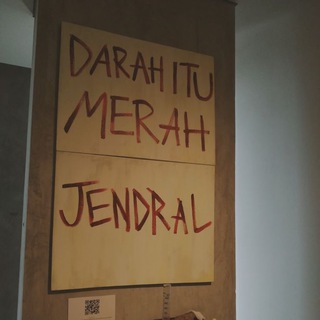 DARAH ITU
MERAH
JENDRAL